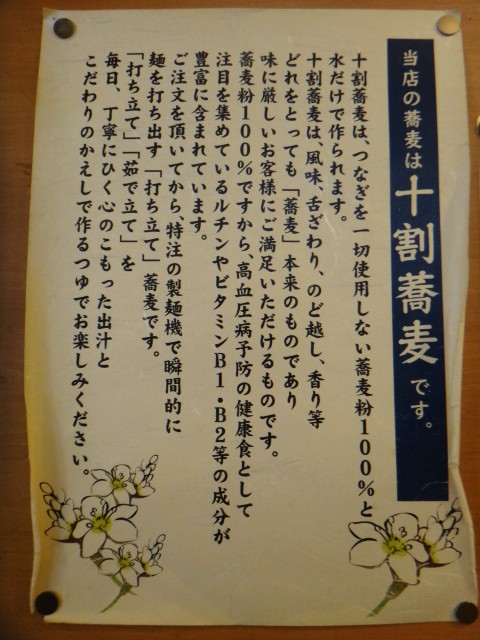 当店の蕎麦は十割蕎麦です。
十割蕎麦は、つなぎを一切使用しない蕎麦粉100%と
水だけで作られます。
十割蕎麦は、風味、舌ざわり、のど越し、香り等
どれをとっても「蕎麦」本来のものであり
味に厳しいお客様にご満足いただけるものです。
蕎麦粉100%ですから、高血圧病予防の健康食として
注目を集めているルチンやビタミンB1・B2等の成分が
豊富に含まれています。
ご注文を頂いてから、特注の製麺機で瞬間的に
麺を打ち出す「打ち立て」蕎麦です。
「打ち立て」「茹で立て」を
毎日、丁寧にひく心のこもった出汁と
こだわりのかえしで作るつゆでお楽しみください。